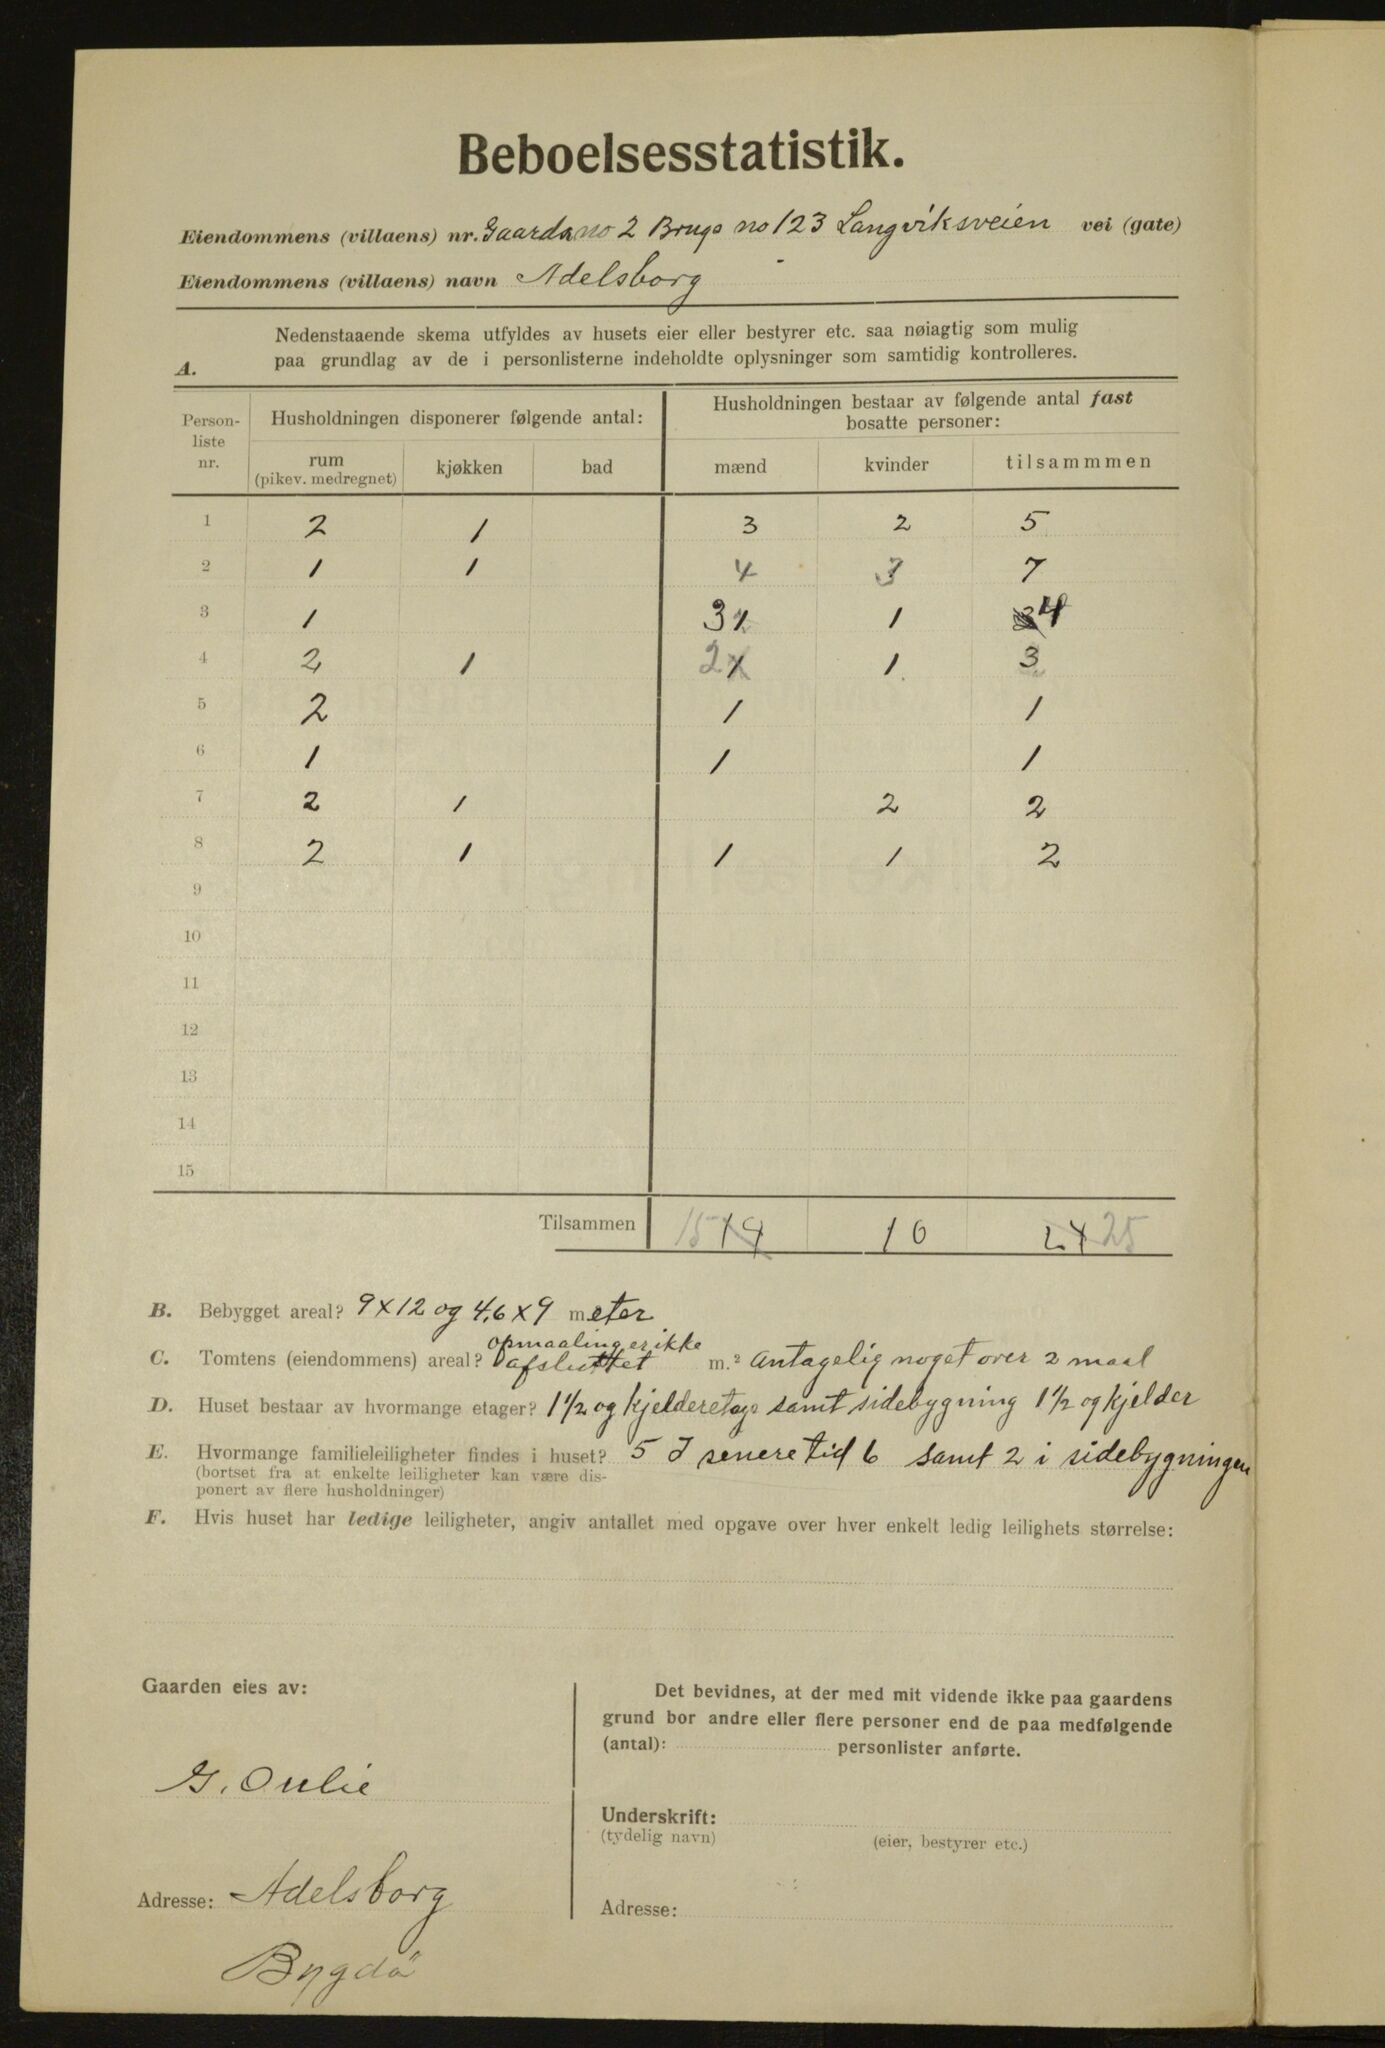 Beboelsesstatistik.
Eiendommens (villaens) nr. Gaards no 2 Brugs no 123 Langviksveien vei (gate)
Eiendommens (villaens) navn Adelsborg
Nedenstaaende skema utfyldes av husets eier eller bestyrer etc. saa nøiagtig som mulig
A. paa grundlag av de i personlisterne indeholdte oplysninger som samtidig kontrolleres.
Person-
liste
nr.
Husholdningen disponerer følgende antal:
Husholdningen bestaar av følgende antal fast
bosatte personer:
rum
(pikev. medregnet)
kjøkken bad mænd kvinder tilsammmen
1 2 1 3 2 5
2 1 1 4 3 7
3 1 3 1 4
4 2 1 2 1 3
5 2 1 1
6 1 1 1
7 2 1 2 2
8 2 1 1 1 2
9
10
11
12
13
14
15
Tilsammen 15 14 10 24 25
B. Bebygget areal? 9x12 og 4,6x9 meter
opmaaling er ikke
C. Tomtens (eiendommens) areal? afsluttet m.² Antagelig noget over 2 maal
D. Huset bestaar av hvormange etager? 1 1/2 og kjelderetage samt sidebygning 1 1/2 og kjelder
E. Hvormange familieleiligheter findes i huset? 5 I senere tid 6 samt 2 i sidebygningen
(bortset fra at enkelte leiligheter kan være dis-
ponert av flere husholdninger)
F. Hvis huset har ledige leiligheter, angiv antallet med opgave over hver enkelt ledig leilighets størrelse:
Gaarden eies av:
G. Oulie
Adresse: Adelsborg
Bygdö
Det bevidnes, at der med mit vidende ikke paa gaardens
grund bor andre eller flere personer end de paa medfølgende
(antal): personlister anførte.
Underskrift:
(tydelig navn) (eier, bestyrer etc.)
Adresse: